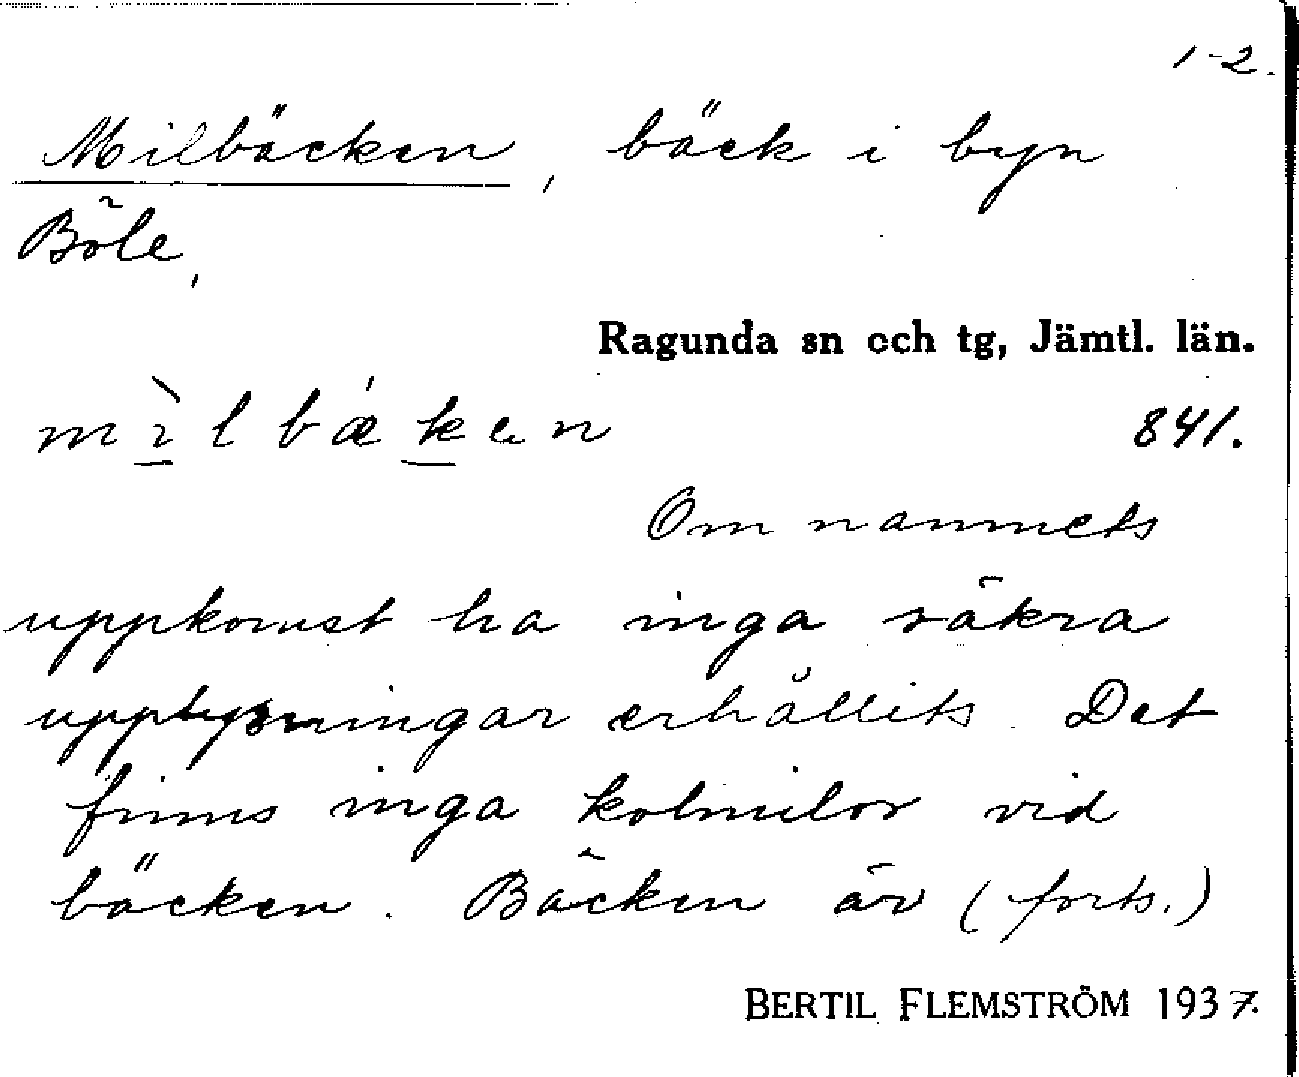 1-2.
Milbäcken, bäck i byn
Böle,
Ragunda sn och tg, Jämtl. län.
mı̀lbǽken 841.
Om namnets
uppkomst ha inga säkra
upplysningar erhållits. Det
finns inga kolmilor vid
bäcken. Bäcken är (forts.)
BERTIL FLEMSTRÖM 1937.